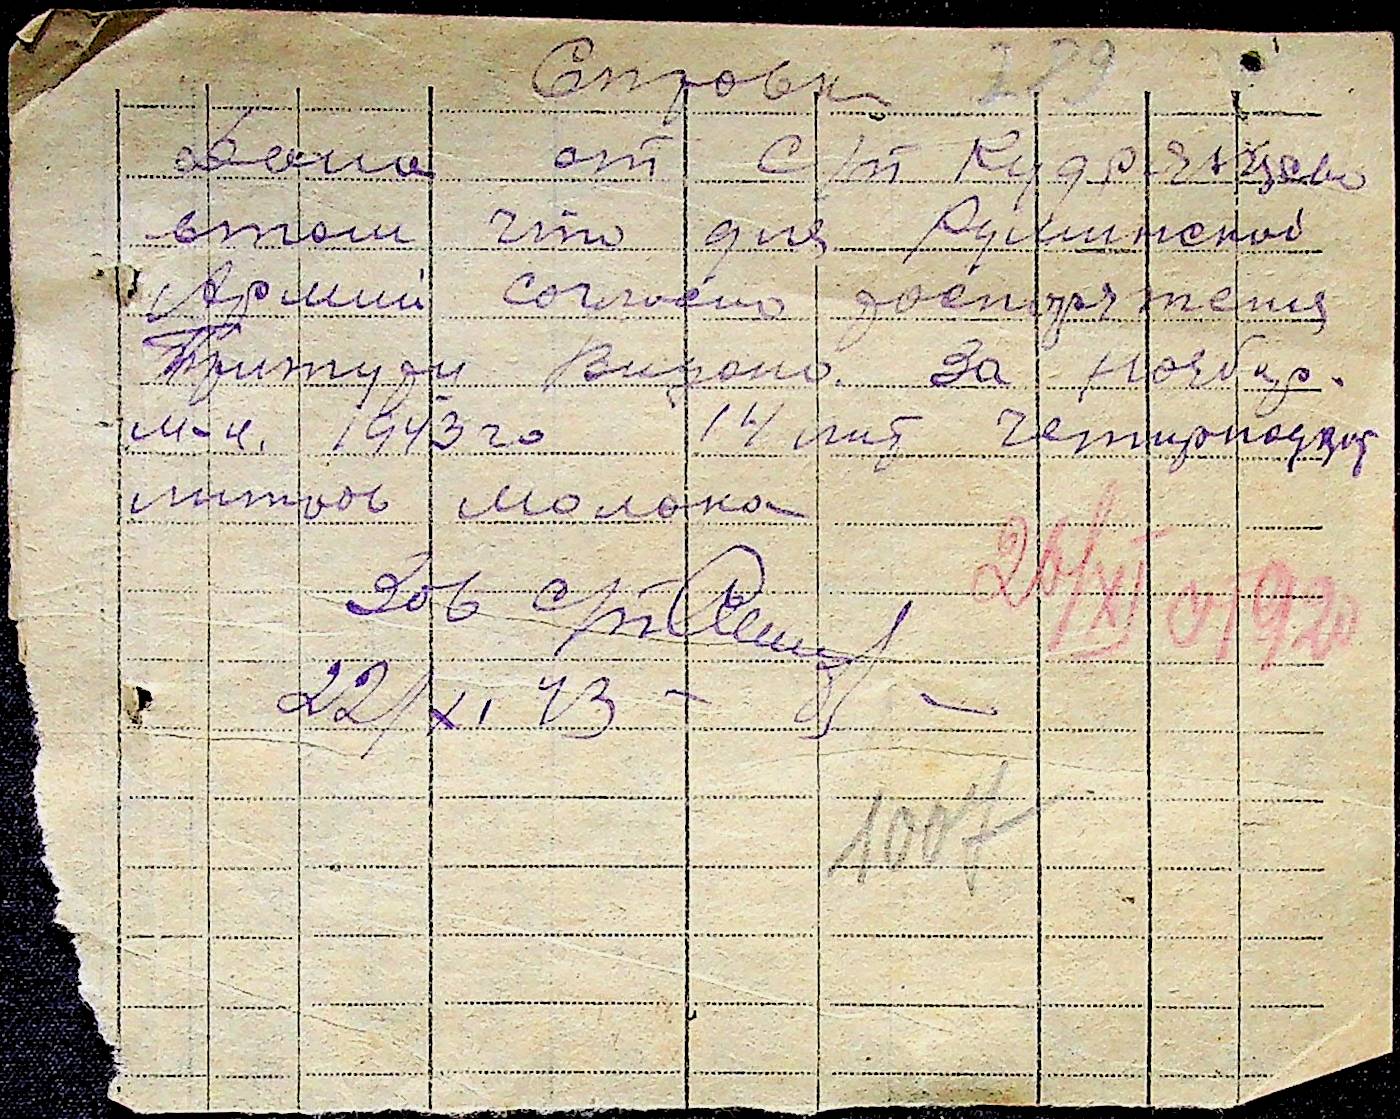 Справка 229
Дана от с/п Кудрявцево
втом что для Румынской
Армии согласно роспоряженя
Притури Видано. За Ноябр.
м-ц. 1943 го 14 лит Четирнодцят
литров молока
Зав с/п
22/XI 43 -
26/XI от 920
1007